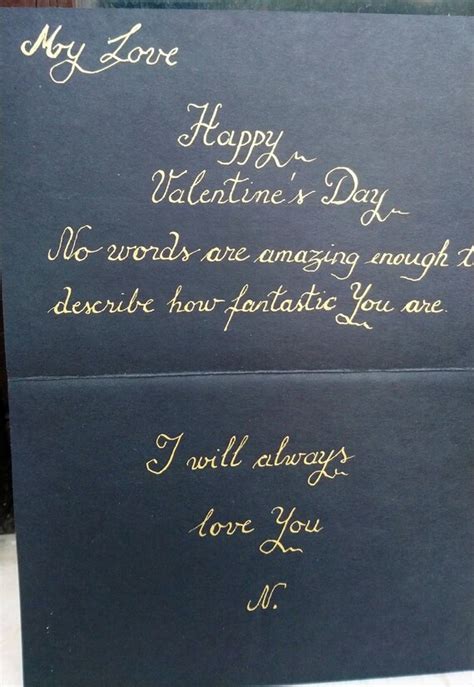 My Love
Happy
Valentine's Day
No words are amazing enough t
describe how fantastic You are.
I will always
love You
N.